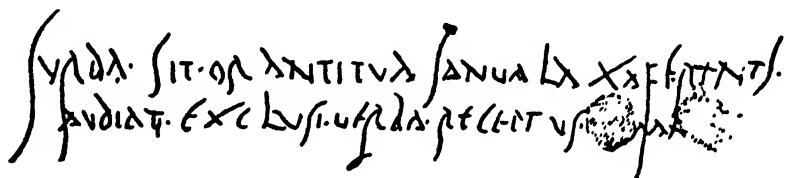 SVRDA·SIT·ORANTI TVA IANUA LAXA FERENTI·
AVDIAT·EXCLUSI·UERBA·RECEPTVS·